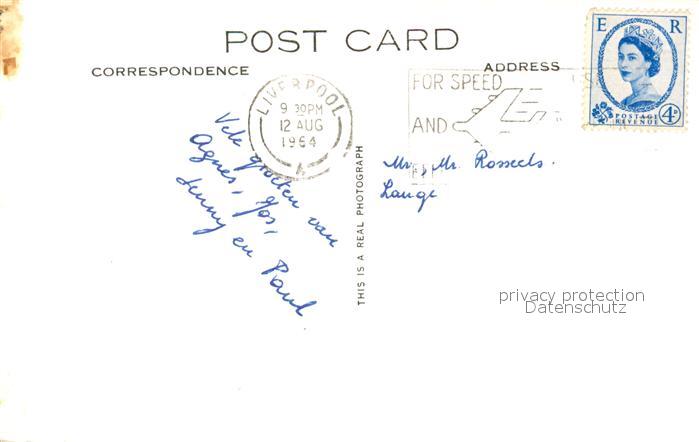 POST CARD
CORRESPONDENCE
ADDRESS
E R
POSTAGE
REVENUE
4D
LIVERPOOL
9 30PM
12 AUG
1964
A
FOR SPEED
AND
Vele groeten van
Agnes, Jos,
Jenny en Paul
THIS IS A REAL PHOTOGRAPH
Mr, Mr. Rosseels.
Lange
privacy protection
Datenschutz